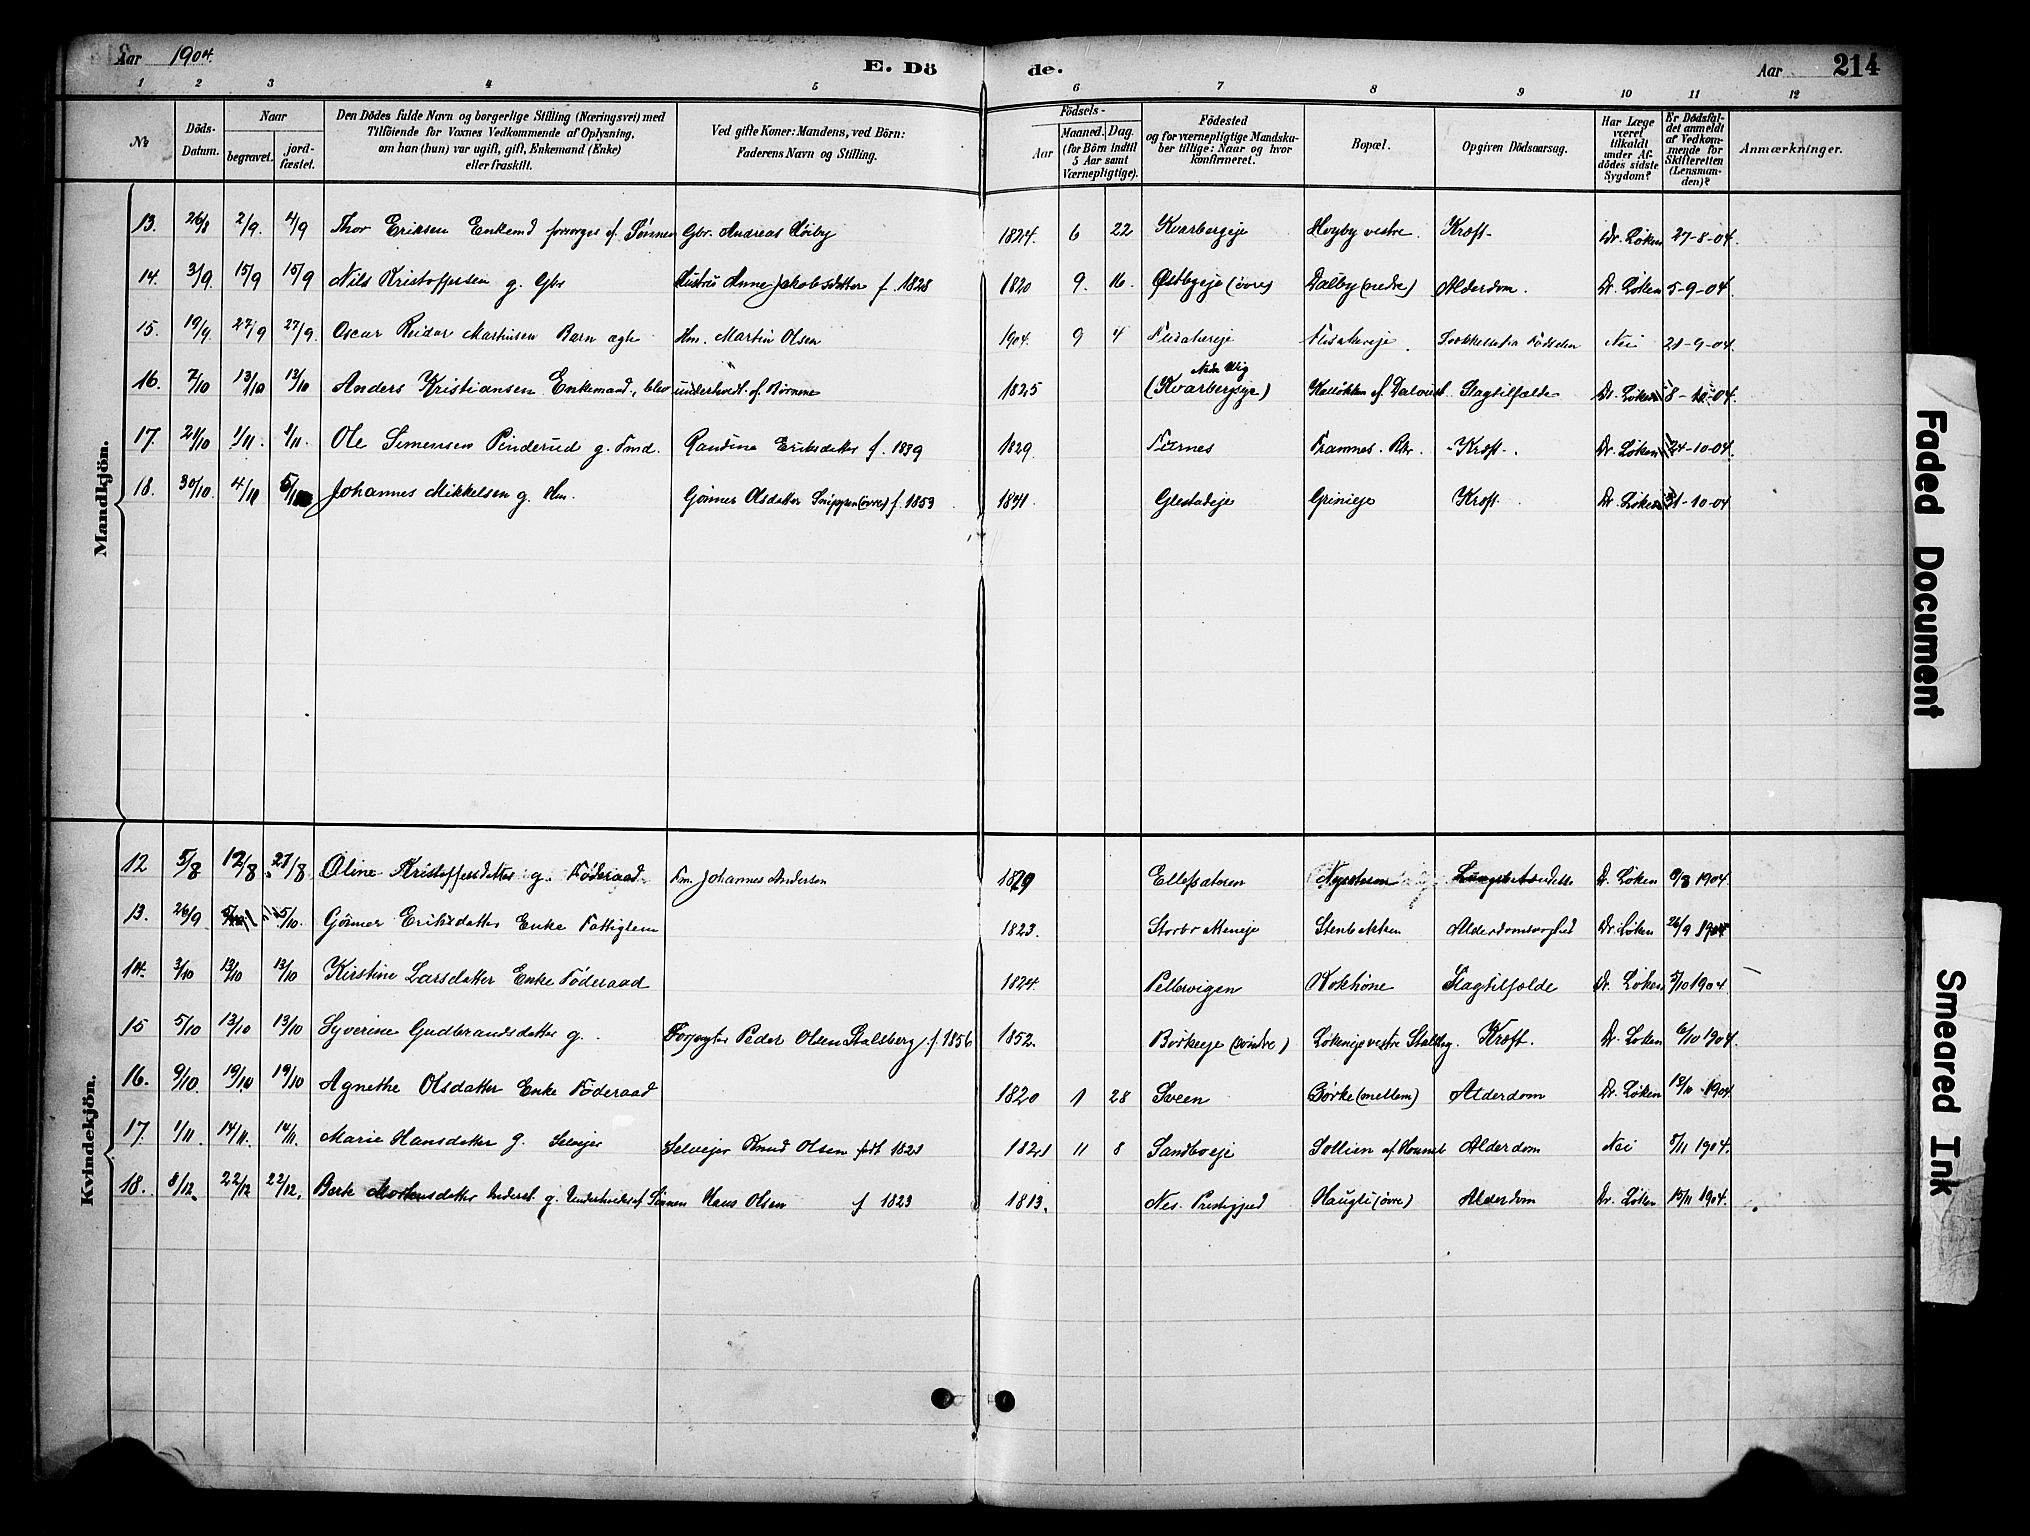 Aar 1904. E. Döde. Aar 214
1 2 3 4 5 6 7 8 9 10 11 12
No. Döds-Datum. Naar begravet. jordfæstet. Den Dödes fulde Navn og borgerlige Stilling (Næringsvei) med Tilföiende for Voxnes Vedkommende af Oplysning, om han (hun) var ugift, gift, Enkemand (Enke) eller fraskilt. Ved gifte Koner: Mandens, ved Börn: Faderens Navn og Stilling. Födsels- Aar Maaned. Dag. (for Börn indtil 5 Aar samt Værnepligtige). Födested og for værnepligtige Mandskaber tillige: Naar og hvor konfirmeret. Bopæl. Opgiven Dödsaarsag. Har Læge været tilkaldt under Afdödes sidste Sygdom? Er Dödsfaldet anmeldt af Vedkommende for Skifteretten (Lensmanden)? Anmærkninger.
Mandkjön.
13. 26/8 2/9. 4/9 Thor Eriksen Enkemd forsørges af Sønnen Gbr. Andreas Høiby 1824. 6 22 Kvarbergeje Høyby vestre. Kræft. Dr. Løken 27-8-04.
14. 3/9. 15/9 15/9 Nils Kristoffersen g. Gbr Hustru Anne Jakobsdatter f. 1828 1820 9. 16. Østbyeje (øvre) Dælby (nedre) Alderdom. Dr. Løken 5-9-04.
15. 19/9. 27/9 27/9. Oscar Reidar Martinsen Barn ægte Hm. Martin Olsen 1904. 9 4 Flisakereje Flisakereje Nei 21-9-04.
16. 7/10 13/10 13/10 Anders Kristiansen Enkemand, blev underholdt af Børnene 1825 (Kvarbergseje) Slagtilfælde Dr. Løken 8-10-04.
17. 21/10 1/11. 1/11. Ole Simensen Pinderud g. Fmd. Randine Eriksdatter f. 1839 1829. Kræft. Dr. Løken 24-10-04.
18. 30/10. 4/11 5/11 Johannes Mikkelsen g. Hm. Gønner Olsdatter Snippen (øvre) f. 1853 1841 Glestadeje Grinieje Kræft. Dr. Løken 31-10-04
Kvindekjön.
12 5/8 12/8. 21/8 Oline Kristoffersdatter g. Føderaad Fm. Johannes Andersen 1829 Ellefsæteren Dr. Løken 6/8 1904.
13. 26/9 5/10. Gønner Eriksdatter Enke Fattiglem 1823. Storbratteneje Stenbækken Alderdomssvaghed Dr. Løken 26/9 1904
14. 3/10 13/10 13/10 Kirstine Larsdatter Enke Føderaad 1824. Pellervigen Slagtilfælde Dr. Løken 5/10 1904
15 5/10 13/10 13/10 Syverine Gudbrandsdatter g. Peder Olsen Stalsberg f. 1856 1852. Børkeeje (søndre) Løkeneje vestre Stalsbg. Kræft. Dr. Løken 6/10 1904.
16. 9/10. 19/10 19/10 Agnethe Olsdatter Enke Føderaad 1820 1 28 Sveen Børke (mellem) Alderdom Dr. Løken 13/10 1904
17. 1/11. 14/11. 14/11. Marie Hansdatter g. Selvejer Selvejer Knud Olsen født 1821 1821 11 8 Sandboeje Alderdom Nei 5/11 1904.
18. 8/12. 22/12 22/12. Berte Mortensdatter Inderst g. Underholdes af Sønnen Hans Olsen f 1823 1813. Nes. Prestegjeld Haugli (øvre) Alderdom Dr. Løken 15/11 1904.
Faded Document
Smeared Ink